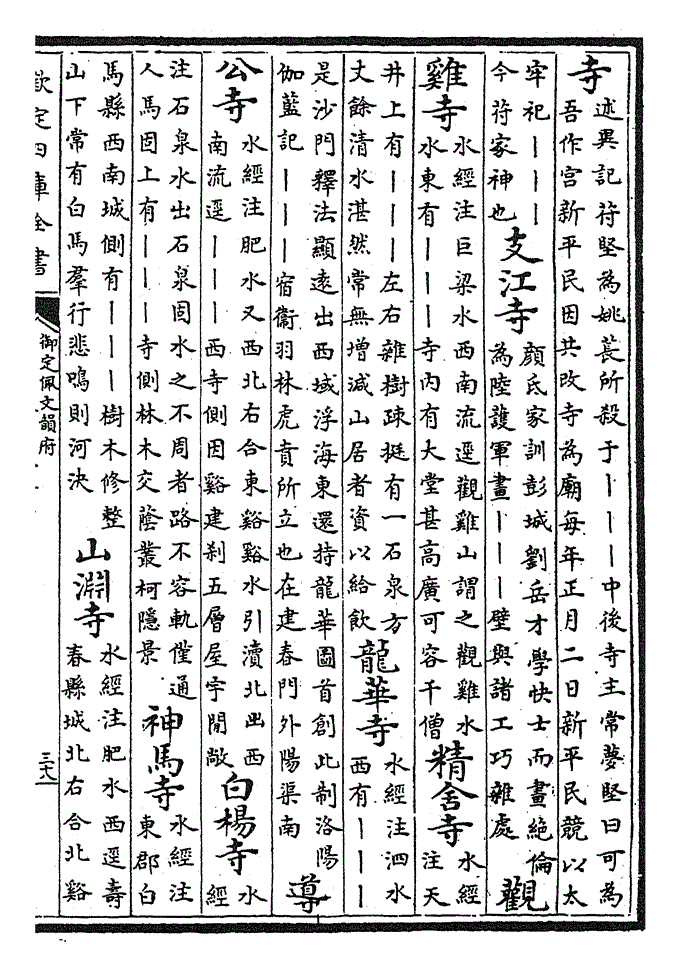 寺
述異記苻堅為姚萇所殺于｜｜｜中後寺主常夢堅曰可為
吾作宫新平民因共改寺為廟每年正月二日新平民競以太
牢祀｜｜｜｜
今苻家神也
支江寺
顔氏家訓彭城劉岳才學快士而畫絶倫
為陸護軍畫｜｜｜壁與諸工巧雜處
觀
雞寺
水經注巨梁水西南流逕觀雞山謂之觀雞水
水東有｜｜｜寺内有大堂甚高廣可容千僧
精舍寺
水經
注天
井上有｜｜｜左右雜樹疎挺有一石泉方
丈餘清水湛然常無增減山居者資以給飲
龍華寺
水經注泗水
西有｜｜｜
是沙門釋法顯遠出西域浮海東還持龍華圖首創此制洛陽
伽藍記｜｜｜宿衞羽林虎賁所立也在建春門外陽渠南
導
公寺
水經注肥水又西北右合東谿谿水引瀆北出西
南流逕｜｜｜西寺側因谿建刹五層屋宇閒敞
白楊寺
水
經
注石泉水出石泉固水之不周者路不容軌僅通
人馬固上有｜｜｜寺側林木交蔭叢柯隱景
神馬寺
水經注
東郡白
馬縣西南城側有｜｜｜樹木修整
山下常有白馬羣行悲鳴則河決
山淵寺
水經注肥水西逕壽
春縣城北右合北谿
欽定四庫全書
御定佩文韻府